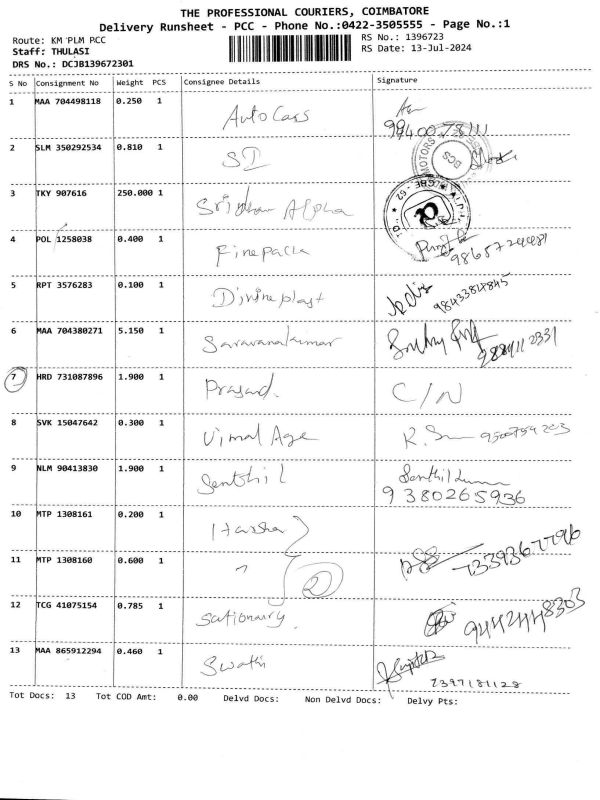 THE PROFESSIONAL COURIERS, COIMBATORE
Delivery Runsheet - PCC - Phone No.:0422-3505555 - Page No.:1
Route: KM PLM PCC
Staff: THULASI
DRS No.: DCJB139672301
RS No.: 1396723
RS Date: 13-Jul-2024
S No Consignment No Weight PCS Consignee Details Signature
1 MAA 704498118 0.250 1 Auto Cars
2 SLM 350292534 0.810 1 SI
3 TKY 907616 250.000 1 Sridhar Alpha
4 POL 1258038 0.400 1 Finepack 9865724481
5 RPT 3576283 0.100 1 Divine plast 9843384845
6 MAA 704380271 5.150 1 Saravanakumar
7 HRD 731087896 1.900 1 Prasad. C/N
8 SVK 15047642 0.300 1 Vimal Age 9500759203
9 NLM 90413830 1.900 1 Senthil Senthil Kumar
9380265936
10 MTP 1308161 0.200 1 Harsha
11 MTP 1308160 0.600 1 " 2 7339367796
12 TCG 41075154 0.785 1 Stationary. 9442448303
13 MAA 865912294 0.460 1 Swathi
7397181128
Tot Docs: 13 Tot COD Amt: 0.00 Delvd Docs: Non Delvd Docs: Delvy Pts: